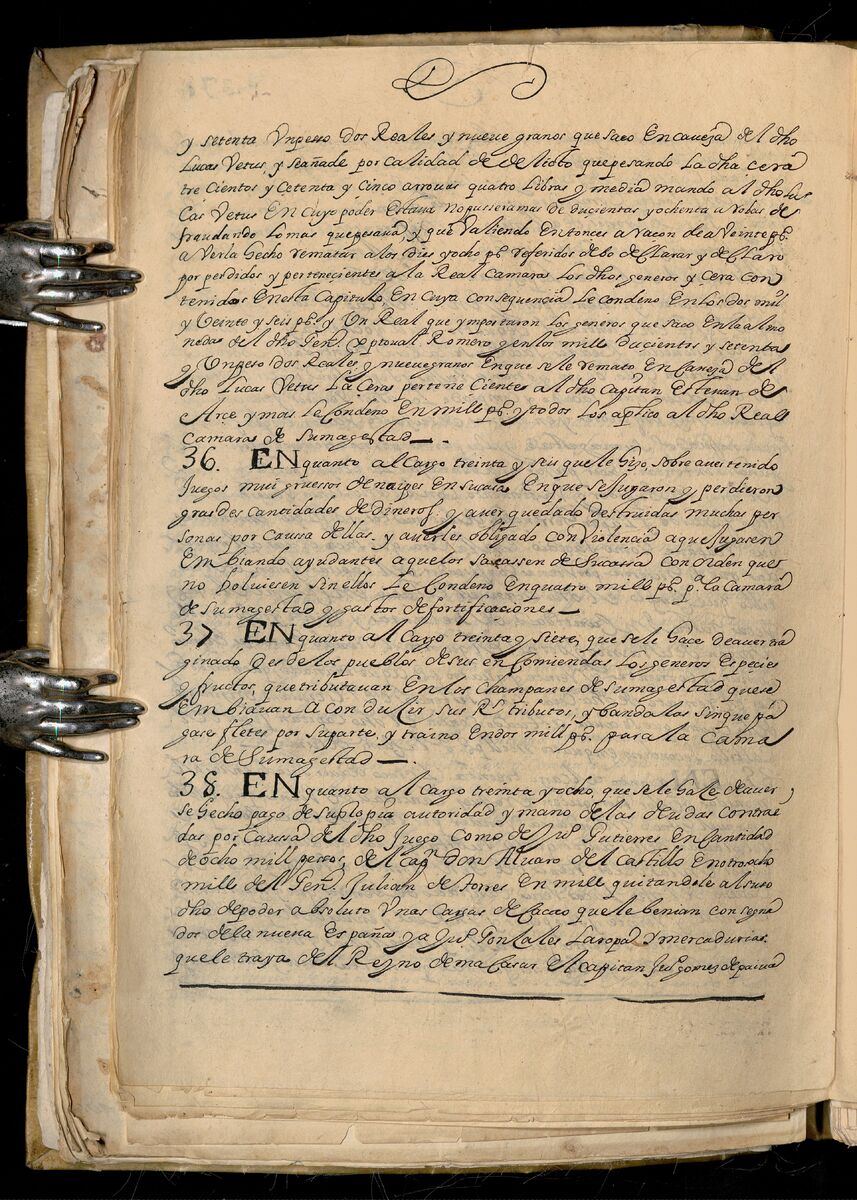 y setenta Vn pesso dos Reales y nueve granos que saco En caveza del dho
Lucas Vetus, y se añade por calidad de delicto que pesando La dha cera
trecientos y Cetenta y Cinco arrouas quatro Libras y media mando al dho Lu
Cas Vetus En Cuyo poder Estaua no pusiera mas de ducientas y ochenta arobas de
fraudando lo mas que pesaua, y que Valiendo Entonces a Racon de a Veinte ps.
a Verla hecho rematar a los dies y ocho ps. referidos debo declarar y declaro
por perdidos y pertenecientes a la Real Camara Los dhos generos y Cera Con
tenidos En este Capitulo, En Cuya Consequencia Le Condeno En los dos mil
y Veinte y seis ps. y Vn Real que ymportaron Los generos que saco En la almo
neda del dho Genl. Xptoual Romero y en los mill Ducientos y setenta
y Vn pesso dos Reales y nueve granos En que se le remato En Caveza del
dho Lucas Vetus La Cera perteneciente al dho Capitan Esteuan de
Arce y mas Le Condeno En mill ps. y todos Los aplico al dho Real
Camara de Su magestad —.
36. EN quanto al Cargo treinta y seis que se le hizo, sobre aver tenido
Juegos mui gruessos de naipes En su casa En que se Jugaron y perdieron
grandes cantidades de dineros. y aver quedado destruidas muchas per
sonas por Caussa dellas. y averles obligado con Violencia a que Jugasen
Embiando ayudantes a que los sacassen de Su cassa con orden que
no bolviesen sin ellos Le Condeno En quatro mill ps. pa. la Camara
de Su magestad y gastos de fortificaciones —
37 EN quanto al Cargo treinta y siete, que se le hace de aver tra
ginado desde los pueblos de sus encomiendas Los generos Especies
y fructos, que tributauan En los Champanes de Su magestad que se
Embiauan A conducir sus Rs. tributos, y bandalas sin que pa
gase fletes por su parte, y traino En dos mill ps. para la Cama
ra de Su magestad —.
38. EN quanto al Cargo treinta y ocho, que se le hace de aver
se hecho pago de su propia autoridad y mano de las deudas Contrai
das por Caussa del dho Juego Como de Jun. Gutierres En Cantidad
de ocho mill pessos, del Capn. Don Aluaro del Castillo En otros ocho
mill del Genl. Julian de torres En mill quitandole al suso
dho de poder absoluto Vnas Cargas de Cacao que le benian consigna
dos de la nueva España y a Jun. Gonzales La ropa y mercadurias
que le traya del Reyno de macasar El Capitan Jun. gomes de paiua